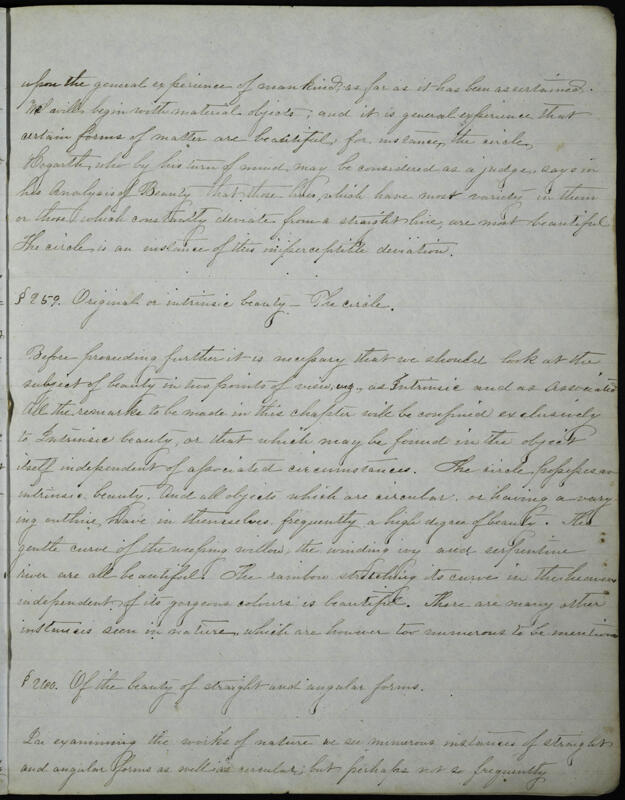 upon the general experience of mankind, as far as it has been ascertained.
We will begin with material objects; and it is general experience that
certain forms of matter are beautiful, for instance, the circle,
Hogarth, who by his turn of mind, may be considered as a judge, says in
his Analysis of Beauty that those lines, which have most variety in them
or those which constantly deviate from a straight line, are most beautiful
The circle is an instance of this imperceptible deviation.
§ 259. Original or intrinsic beauty — The circle.
Before proceeding further it is necessary that we should look at the
subject of beauty in two points of view, viz., as Intrinsic and as Associated
All the remarks to be made in this chapter will be confined exclusively
to Intrinsic beauty, or that which may be found in the object
itself independent of associated circumstances. The circle possesses an
intrinsic beauty. And all objects which are circular, or having a vary-
ing outline, have in themselves frequently a high degree of beauty. The
gentle curve of the weeping willow, the winding ivy and serpentine
river are all beautiful. The rainbow stretching its curve in the heavens
independent of its gorgeous colours is beautiful. There are many other
instances seen in nature, which are however too numerous to be mention
§ 260. Of the beauty of straight and angular forms.
In examining the works of nature we see numerous instances of straight
and angular forms as well as circular; but perhaps not so frequently